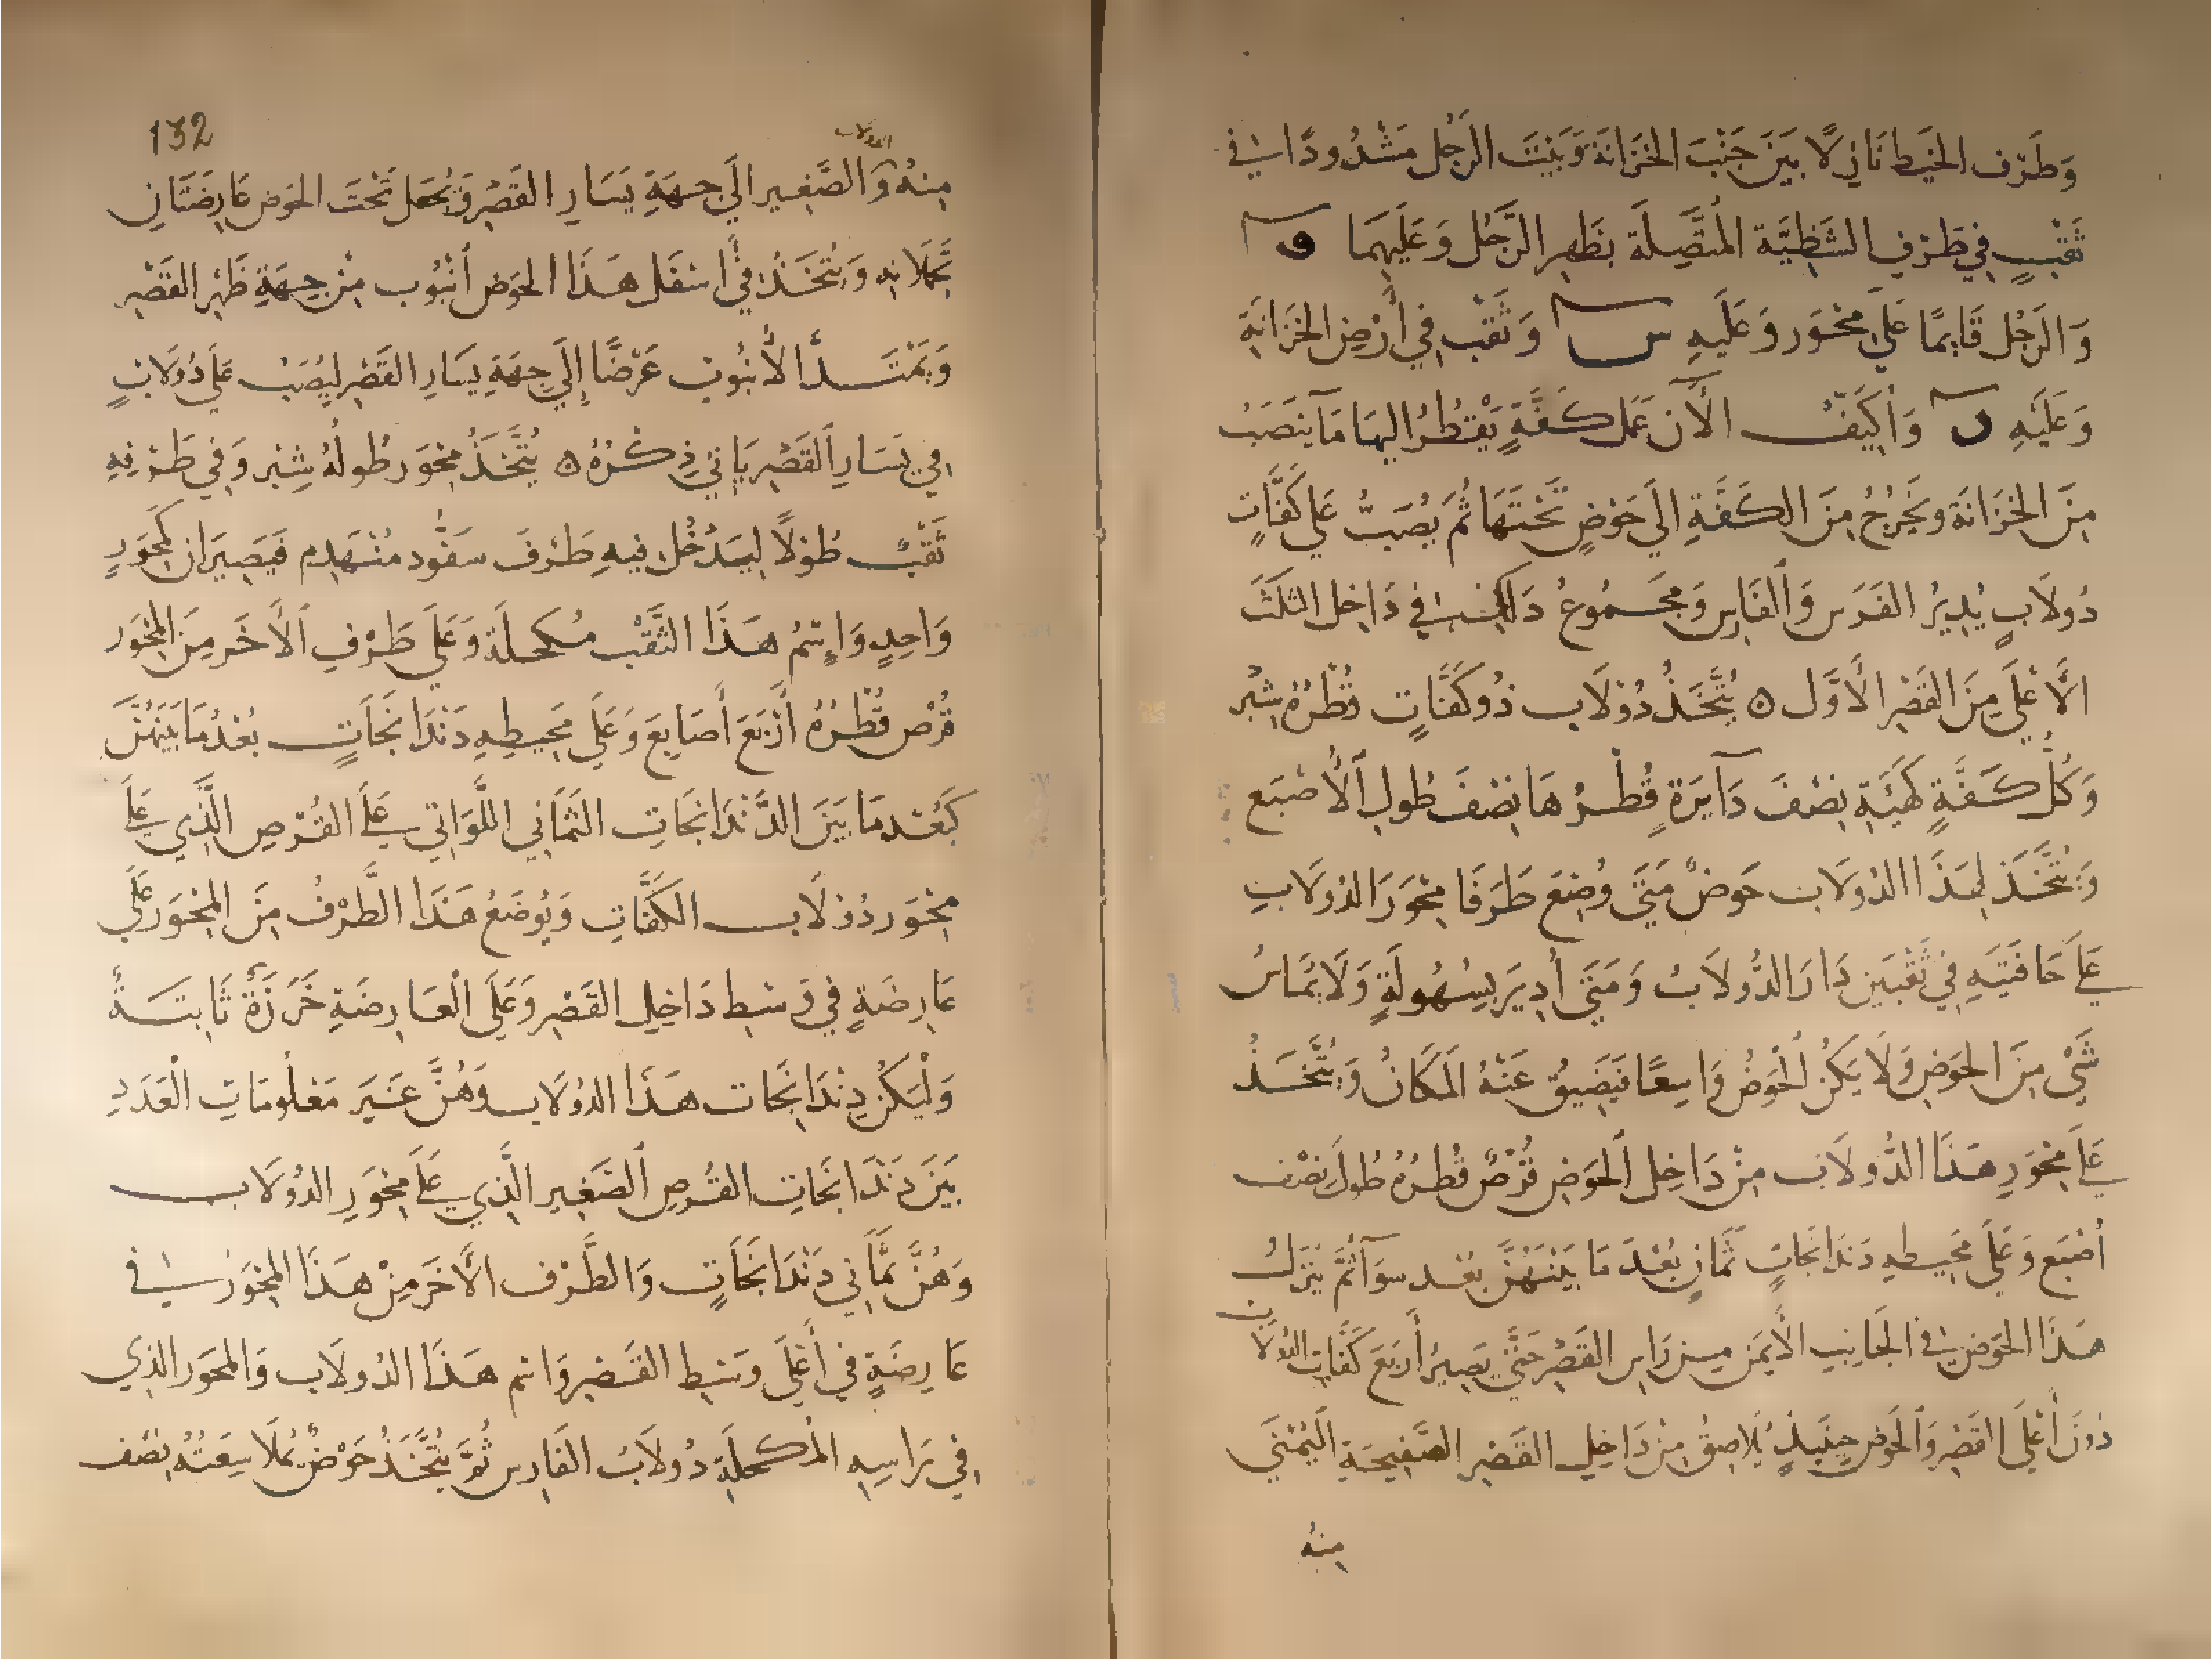 وَطَرَف الخَيط نَازِلًا بَيْنَ جَنْبَ الخَزَانَة وَبَيْتَ الرَجُل مَشْدُودًا في
ثَقْبٍ فِي طَرَفِ الشَظِيَّة المُتَّصِلَة بظَهر الرَّجُل وَعَلَيهِمَا و
وَالرَجُل قَايمًا عَلَى مِحْوَر وَعَلَيهِ س وَثَقْب فِي أَرْضِ الخَزَانَةِ
وَعَلَيْهِ ں وَأكَيّفُ الآن عَمَل كَفَّةٍ يَقْطُرُ اليهَا مَا يَنصَبُ
مِنَ الخَزَانَة وَيَخْرُجُ مِنَ الكَفَّةِ الَي حَوْضٍ تَحْتَهَا ثُمَّ يُصَبُّ عَلى كَفَّاتٍ
دُولَابٍ يُدِيرُ الفَرَس وَالفَارِس وَمَجْمُوعُ ذَلِكَ في دَاخِل الثلَثَ
الأَعْلَى مِنَ القَصْر الأَوَّل ه يُتَّخَذُ دُوْلَاب ذُو كَفَّاتٍ قُطْرُهُ شِبْر
وَكُلُّ كَفَّةٍ كَهَيْئَةِ نِصْفَ دَآيرَةٍ قُطْرُهَا نِصْفَ طُولِ الأُصْبَع
وَيُتَّخَذ لِهَذَا الدُولَاب حَوضٌ مَتَى وُضِعَ طَرَفَا مِحْوَرَ الدُولَابِ
عَلَى حَافَتَيهِ فِي ثَقْبَين دَارَ الدُّولَابُ وَمَتَى أُدِيرَ بِسُهُولَةٍ وَلَا يُمَاسُ
شَيْ مِنَ الحَوَضِ وَلَا يَكُن الحَوضُ وَاسِعًا فَيَضِيقُ عَنْهُ المَكَانُ وَيُتَّخَذُ
عَلَى مِحْوَرِ هَذَا الدُّولَاب مِنْ دَاخِل الحَوَض قُرْصٌ قُطْرُهُ طُولُ نِصْف
أصْبَع وَعَلَى مُحِيطِهِ دَندَانجَاتٍ ثَمَانٍ بُعْدَ مَا بَيْنَهُنَّ بُعْد سَوَآ ثُمَّ يُتْرَكُ
هَذَا الحَوَض في الجَانِبِ الأَيْمَن مِن رَاسِ القَصْرِ حَتَّى يَصِيرُ أَربَعَ كَفَّاتِ الدُولَابِ
دُونَ أَعْلَى القَصْرِ وَالحَوض حِينَئِذٍ يُلَاصِقُ مِن دَاخِلِ القَصْرِ الصَّفِيحَةِ اليُمْنَي
مِنهُ
132
الدولاب
مِنهُ وَالصَّغِير الَى جِهَةِ يَسَارِ القَصْرِ وَيُجعَل تَحْتَ الحَوض عَارِضَتَانِ
تَحمِلَانِهِ وَيُتَّخَذُ فِي اسْفَل هَذَا الحَوْض أنْبُوب مِنْ جِهَةِ ظَهْر القَصْرِ
وَيَمْتَدُّ الأُنْبُوب عَرْضًا إِلَى جِهَةِ يَسَارِ القَصْر لِيَصُبْ عَلَى دُولَابٍ
فِي يَسَارِ القَصْرِ يَاتِي ذِكْرُهُ ه يُتَّخَذُ مِحْوَر طُولُهُ شِبْر وَفِي طَرْفِهِ
ثَقْبٌ طُوْلًا لِيَدْخُل فِيهِ طَرْفَ سَفُّود مُنْهَدِم فَيَصِيرَان كَمِحْوَرٍ
وَاحِدٍ وَاسْمُ هَذَا الثَّقْب مُكحلَة وَعَلَى طَرْفِ الأَخَر مِنَ المِحْوَر
قُرْص قُطْرُهُ أَرْبَعَ أَصَابِعَ وَعَلَى مُحِيطِهِ دَنْدَانجَاتٍ بُعْدُ مَا بَيْنَهُنَّ
كَبُعْد مَا بَيْنَ الدَّنْدَانجَاتِ الثَمَانِي اللَّوَاتِي عَلَى القُرْصِ الَّذِي عَلَى
مِحْوَر دُوْلَاب الكَفَّاتِ وَيُوضَعُ هَذَا الطَّرْفُ مِنَ المِحْوَر عَلَى
عَارِضَةٍ فِي وَسَطِ دَاخِلِ القَصْرِ وَعَلَى الْعَارِضَةِ خَرَزَةٌ ثَابتَةٌ
وَلْيَكُن دَنْدَانجَات هَذَا الدُولَاب وَهُنَّ غَيَر مَعْلُومَاتِ الْعَدَدِ
بَيْنَ دَنْدَانجَاتِ القُرصِ الصَغِيرِ الَّذِي عَلَى مِحْوَرِ الدُولَاب
وَهُنَّ ثَمَانِي دَنْدَانجَاتٍ وَالطَّرْف الأَخَر مِنْ هَذَا المِحْوَرُ في
عَارِضَةٍ فِي أَعْلَى وَسَطِ القَصْرِ وَاسْم هَذَا الدُولَاب وَالمِحْوَر الذِي
فِي رَاسِهِ المُكحلَةِ دُولَابُ الفَارِس ثُمَّ يُتَّخَذُ حَوْضٌ يُملَا سِعَتُهُ نِصْف